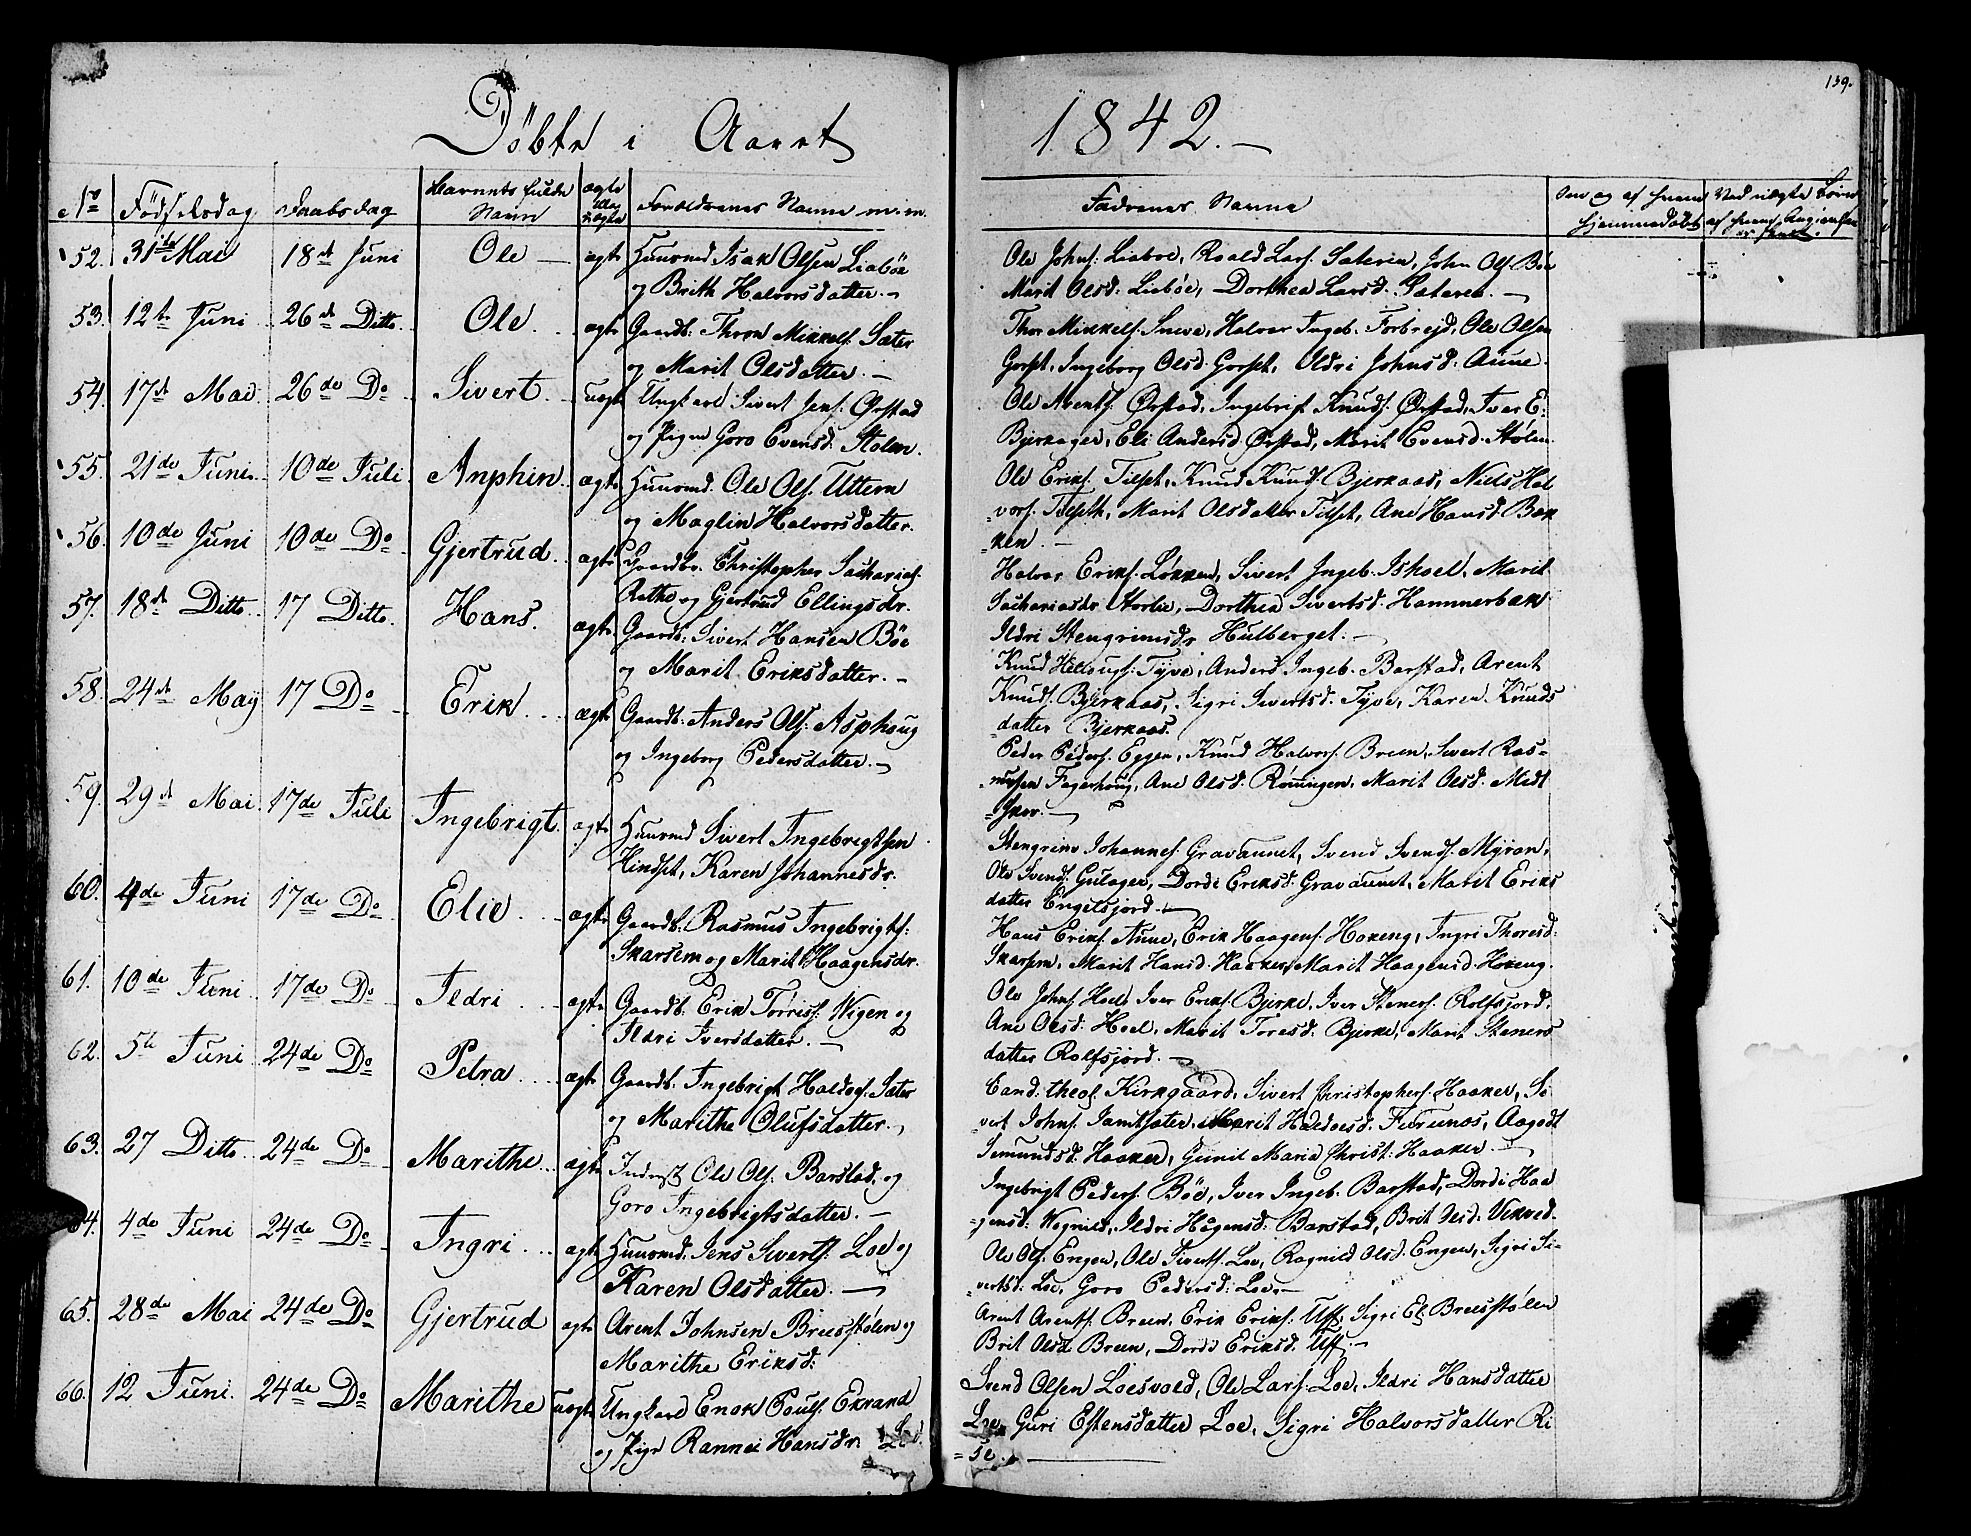 139.
Döbte i Aaret 1842.
No Födselsdag Daabsdag Barnets fulde Navn ægte eller uægte Forældrenes Navne m.m.
Faddernes Navne Om og af hvem hjemmedöbt
52. 31te Mai 18de Juni Ole ægte Huusmd Isak Olsen Liaböe
og Brith Halvorsdatter.
Ole Johns. Liaboe, Roald Lars. Sæteren, John Ols. Böe
Marit Olsd. Liaböe, Dorthea Larsd. Sæteren.
53. 12te Juni 26de Ditto Ole ægte Gaardb. Thron Mikkels. Sæter
og Marit Olsdatter.
Thor Mikkels. Sneve, Halvor Ingeb. Forbregd, Ole Olsen
Gorset, Ingeborg Olsd. Gorset, Oldri Johnsd. Aune.
54. 17de Mai 26de Do Sivert uægte Ungkarl Sivert Jens. Ørstad
og Pigen Goro Evensd. Stølen.
Ole Arents. Ørstad, Ingebrigt Knuds. Ørstad, Iver E.
Bjerkager, Eli Andersd. Ørstad, Marit Evensd. Stølen.
55. 21de Juni 10de Juli Anphin ægte Huusmd. Ole Ols. Uttern
og Maglin Halvorsdatter.
Ole Eriks. Tilset, Knud Knuds. Bjerkaas, Niels Hal
=vors. Tilseth, Marit Olsdatter Tilset, Ane Hansd. Bak
=ken.
56. 10de Juni 10de Do Gjertrud ægte Gaardbr. Christopher Sacharias.
Rathe og Gjertrud Ellingsdr.
Halvor Eriks. Løkken, Sivert Ingeb. Ishoel, Marit
Sachariasdr Storlie, Dorthea Sivertsd. Hammerbak
Ildri Stengrimsdr Hulberget.
57. 18de Ditto 17 Ditto Hans. ægte Gaardb. Sivert Hansen Böe
og Marit Eriksdatter.
Knud Tyve, Anders Ingeb. Barstad, Arent
Knuds. Bjerkaas, Sigri Sivertsd. Tyve, Karen Knuds
datter Bjerkaas.
58. 24de May 17 Do Erik ægte Gaardb. Anders Ols. Asphoug
og Ingeborg Pedersdatter.
Peder Peders. Eggen, Knud Halvors. Breen, Sivert Ras=
=musen Fagerhoug, Ane Olsd. Ronningen, Marit Olsd. Midt
=skor.
59. 29de Mai 17de Juli Ingebrigt ægte Huusmd Sivert Ingebrigtsen
Hindset, Karen Johannesdr.
Stengrim Johannes. Gravaunet, Svend Svends. Myran,
Ole Svends. Gulager, Dordi Eriksd. Gravaunet, Marit Eriks
datter Engelsjord.
60. 4de Juni 17de Do Elie ægte Gaardb. Rasmus Ingebrigts.
Skarsem og Marit Haagensdr.
Hans Eriks. Aune, Erik Haagens. Hokeng, Ingri Thoresd.
Skarsem, Marit Hansd. Haaker, Marit Haagensd. Hokeng.
61. 10de Juni 17de Do Ildri ægte Gaardb. Erik Torris. Wigen og
Ildri Iversdatter.
Ole Johns. Hoel, Iver Eriks. Bjerke, Iver Steners. Rolfsjord,
Ane Olsd. Hoel, Marit Toresd. Bjerke, Marit Steners
datter Rolfsjord.
62. 5te Juni 24de Do Petra ægte Gaardb. Ingebrigt Haldos. Sæter
og Marithe Olufsdatter.
Cand. theol. Kirkgaard, Sivert Christophers. Haaker, Si
=vert Johns. Jamtsæter, Marit Haldosd. Furunos, Aagodt
Semundsd. Haaker, Gunil Maria Christ. Haaker.
63. 27 Ditto 24de Do Marithe ægte Inderst Ole Ols. Barstad, og
Goro Ingebrigtsdatter.
Ingebrigt Peders. Böe, Iver Ingeb. Barstad, Dordi Haa
=gensd. Wognild, Ildri Hagensd. Barstad, Brit Olsd. Vikved.
64. 4de Juni 24de Do Ingri ægte Huusmd. Jens Siverts. Loe og
Karen Olsdatter.
Ole Ols. Engen, Ole Siverts. Loe, Ragnild Olsd. Engen, Sigri Si=
=vertsd. Loe, Goro Pedersd. Loe.
65. 28de Mai 24de Do Gjertrud ægte Arent Johnsen Breesstølen og
Marithe Eriksd.
Arent Arents. Breen, Erik Eriks. Uff, Sigri El. Breesstølen
Brit Olsd. Breen, Dordi Eriksd. Uff.
66. 12 Juni 24de Do Marithe uægte Ungkarl Enok Pouls. Ekrand
og Pige Rannei Hansdr Loe.
Svend Olsen Loesvold, Ole Lars. Loe, Ildri Hansdatter
Loe, Guri Estensdatter Loe, Sigri Halvorsdatter Ri
=se.